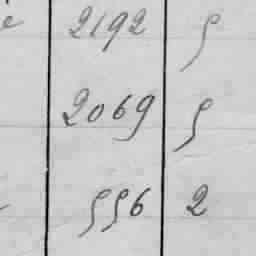 2192 5
2069 5
556 2